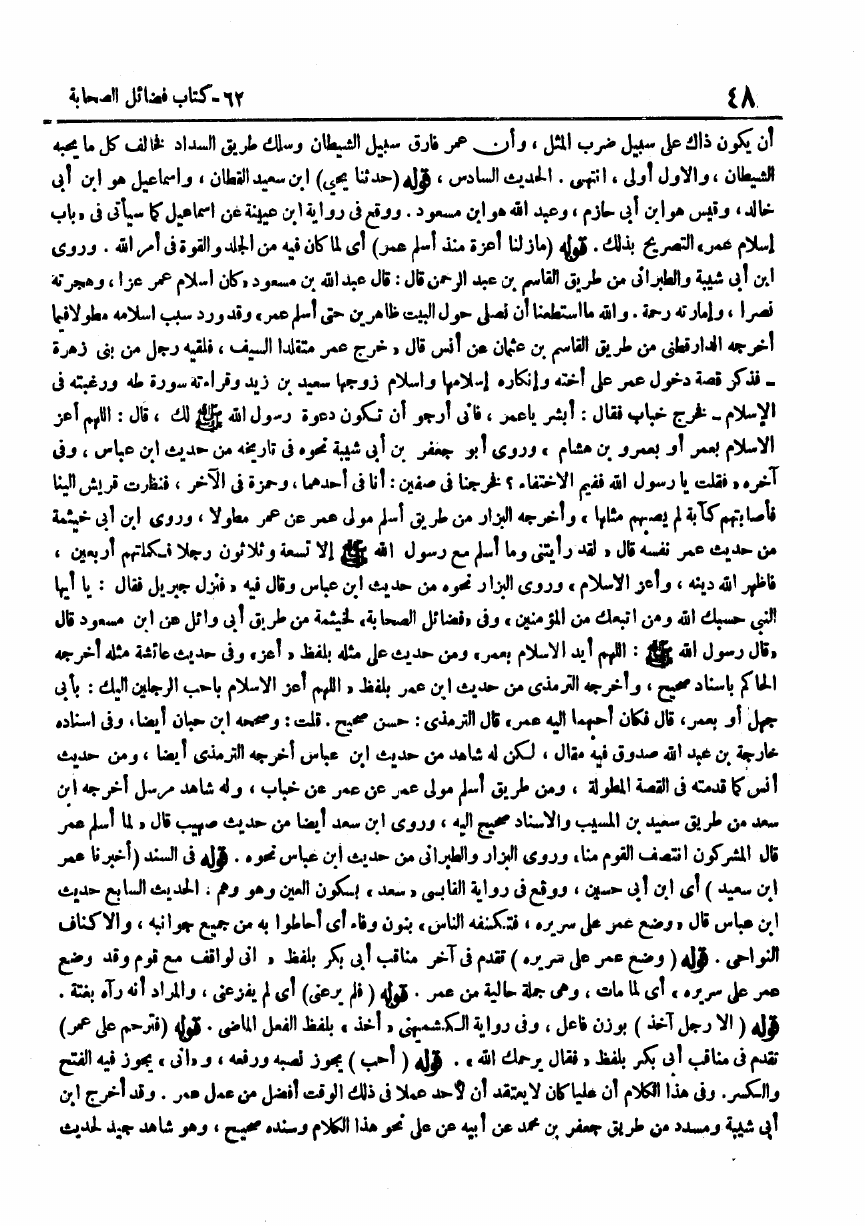 ٤٨ ٦٢ - كتاب فضائل الصحابة
أن يكون ذاك على سبيل ضرب المثل ، وأن عمر فارق سبيل الشيطان وسلك طريق السداد فخالف كل ما يحبه
الشيطان ، والاول أولى ، انتهى . الحديث السادس ، قوله (حدثنا يحيى) ابن سعيد القطان ، واسماعيل هو ابن أبى
خالد، وقيس هو ابن أبى حازم ، وعبد الله هو ابن مسعود . ووقع فى رواية ابن عيينة عن اسماعيل كما سيأتى فى « باب
إسلام عمر» التصريح بذلك . قوله (مازلنا أعزة منذ أسلم عمر) أى لما كان فيه من الجلد والقوة فى أمر الله . وروى
ابن أبى شيبة والطبرانى من طريق القاسم بن عبد الرحمن قال : قال عبد الله بن مسعود «كان اسلام عمر عزا ، وهجرته
نصرا ، وإمارته رحمة . والله ما استطعنا أن نصلى حول البيت ظاهرين حتى أسلم عمر» وقد ورد سبب اسلامه مطولا فيما
أخرجه الدارقطنى من طريق القاسم بن عثمان عن أنس قال « خرج عمر متقلدا السيف ، فلقيه رجل من بنى زهرة
ـ فذكر قصة دخول عمر على أخته وإنكاره إسلامها واسلام زوجها سعيد بن زيد وقراءته سورة طه ورغبته فى
الإسلام ـ فخرج خباب فقال : أبشر ياعمر ، فانى أرجو أن تكون دعوة رسول الله ﷺ لك ، قال : اللهم أعز
الاسلام بعمر أو بعمرو بن هشام » وروى أبو جعفر بن أبى شيبة نحوه فى تاريخه من حديث ابن عباس ، وفى
آخره « فقلت يا رسول الله ففيم الاختفاء ؟ فخرجنا فى صفين : أنا فى أحدهما ، وحمزة فى الآخر ، فنظرت قريش الينا
فأصابتهم كآبة لم يصبهم مثلها » وأخرجه البزار من طريق أسلم مولى عمر عن عمر مطولا ، وروى ابن أبى خيثمة
من حديث عمر نفسه قال « لقد رأيتنى وما أسلم مع رسول الله ﷺ إلا تسعة وثلاثون رجلا فكملتهم أربعين ،
فاظهر الله دينه ، وأعز الاسلام » وروى البزار نحوه من حديث ابن عباس وقال فيه « فنزل جبريل فقال : يا أيها
النبي حسبك الله ومن اتبعك من المؤمنين » وفى «فضائل الصحابة» لخيثمة من طريق أبى وائل عن ابن مسعود قال
«قال رسول الله ﷺ : اللهم أيد الاسلام بعمر» ومن حديث على مثله بلفظ « أعز» وفى حديث عائشة مثله أخرجه
الحاكم باسناد صحيح ، وأخرجه الترمذى من حديث ابن عمر بلفظ « اللهم أعز الاسلام باحب الرجلين اليك : بأبى
جهل أو بعمر، قال فكان أحبهما اليه عمر» قال الترمذى : حسن صحيح . قلت : وصححه ابن حبان أيضا، وفى اسناده
خارجة بن عبد الله صدوق فيه مقال ، لكن له شاهد من حديث ابن عباس أخرجه الترمذى أيضا ، ومن حديث
أنس كما قدمته فى القصة المطولة ، ومن طريق أسلم مولى عمر عن عمر عن خباب ، وله شاهد مرسل أخرجه ابن
سعد من طريق سعيد بن المسيب والاسناد صحيح اليه ، وروى ابن سعد أيضا من حديث صهيب قال « لما أسلم عمر
قال المشركون انتصف القوم منا» وروى البزار والطبرانى من حديث ابن عباس نحوه . قوله فى السند (أخبرنا عمر
ابن سعيد ) أى ابن أبى حسين ، ووقع فى رواية القابسى « سعد » بسكون العين وهو وهم . الحديث السابع حديث
ابن عباس قال « وضع عمر على سريره ، فتكنفه الناس» بنون وفاء أى أحاطوا به من جميع جوانبه ، والاكناف
النواحى . قوله ( وضع عمر على سريره ) تقدم فى آخر مناقب أبى بكر بلفظ « انى لواقف مع قوم وقد وضع
عمر على سريره » أى لما مات ، وهى جملة حالية من عمر . قوله ( فلم يرعنى) أى لم يفزعنى ، والمراد أنه رآه بغتة .
قوله ( الا رجل آخذ ) بوزن فاعل ، وفى رواية الكشميهنى « أخذ » بلفظ الفعل الماضى . قوله (فترحم على عمر)
تقدم فى مناقب أبى بكر بلفظ « فقال يرحمك الله » . قوله ( أحب ) يجوز نصبه ورفعه ، و «انى» يجوز فيه الفتح
والكسر . وفى هذا الكلام أن عليا كان لا يعتقد أن لأحد عملا فى ذلك الوقت أفضل من عمل عمر . وقد أخرج ابن
أبى شيبة ومسدد من طريق جعفر بن محمد عن أبيه عن على نحو هذا الكلام وسنده صحيح ، وهو شاهد جيد لحديث